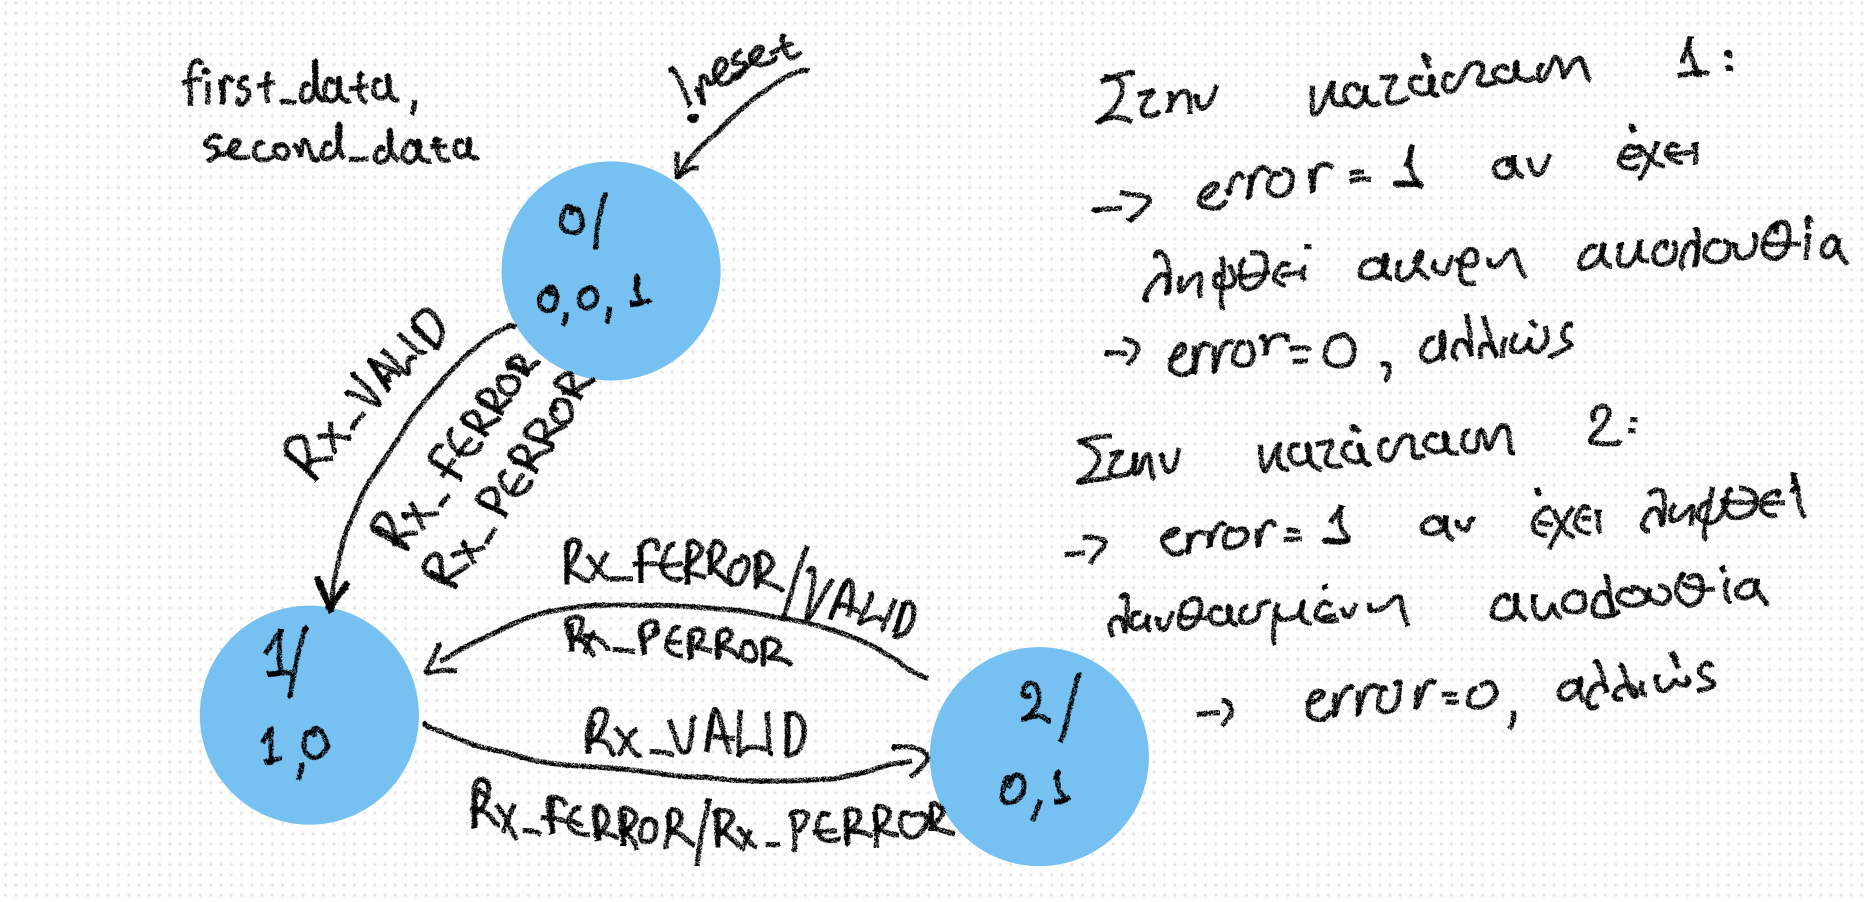 first_data,
second_data
!reset
0/
0,0,1
Rx_VALID
Rx_FERROR
Rx_PERROR
Rx_FERROR/VALID
Rx_PERROR
1/
1,0
Rx_VALID
Rx_FERROR/Rx_PERROR
2/
0,1
Στην κατάσταση 1:
→ error=1 αν έχει
ληφθεί ακυρη ακολουθία
→ error=0, αλλιώς
Στην κατάσταση 2:
→ error=1 αν έχει ληφθεί
λανθασμένη ακολουθία
→ error=0, αλλιώς